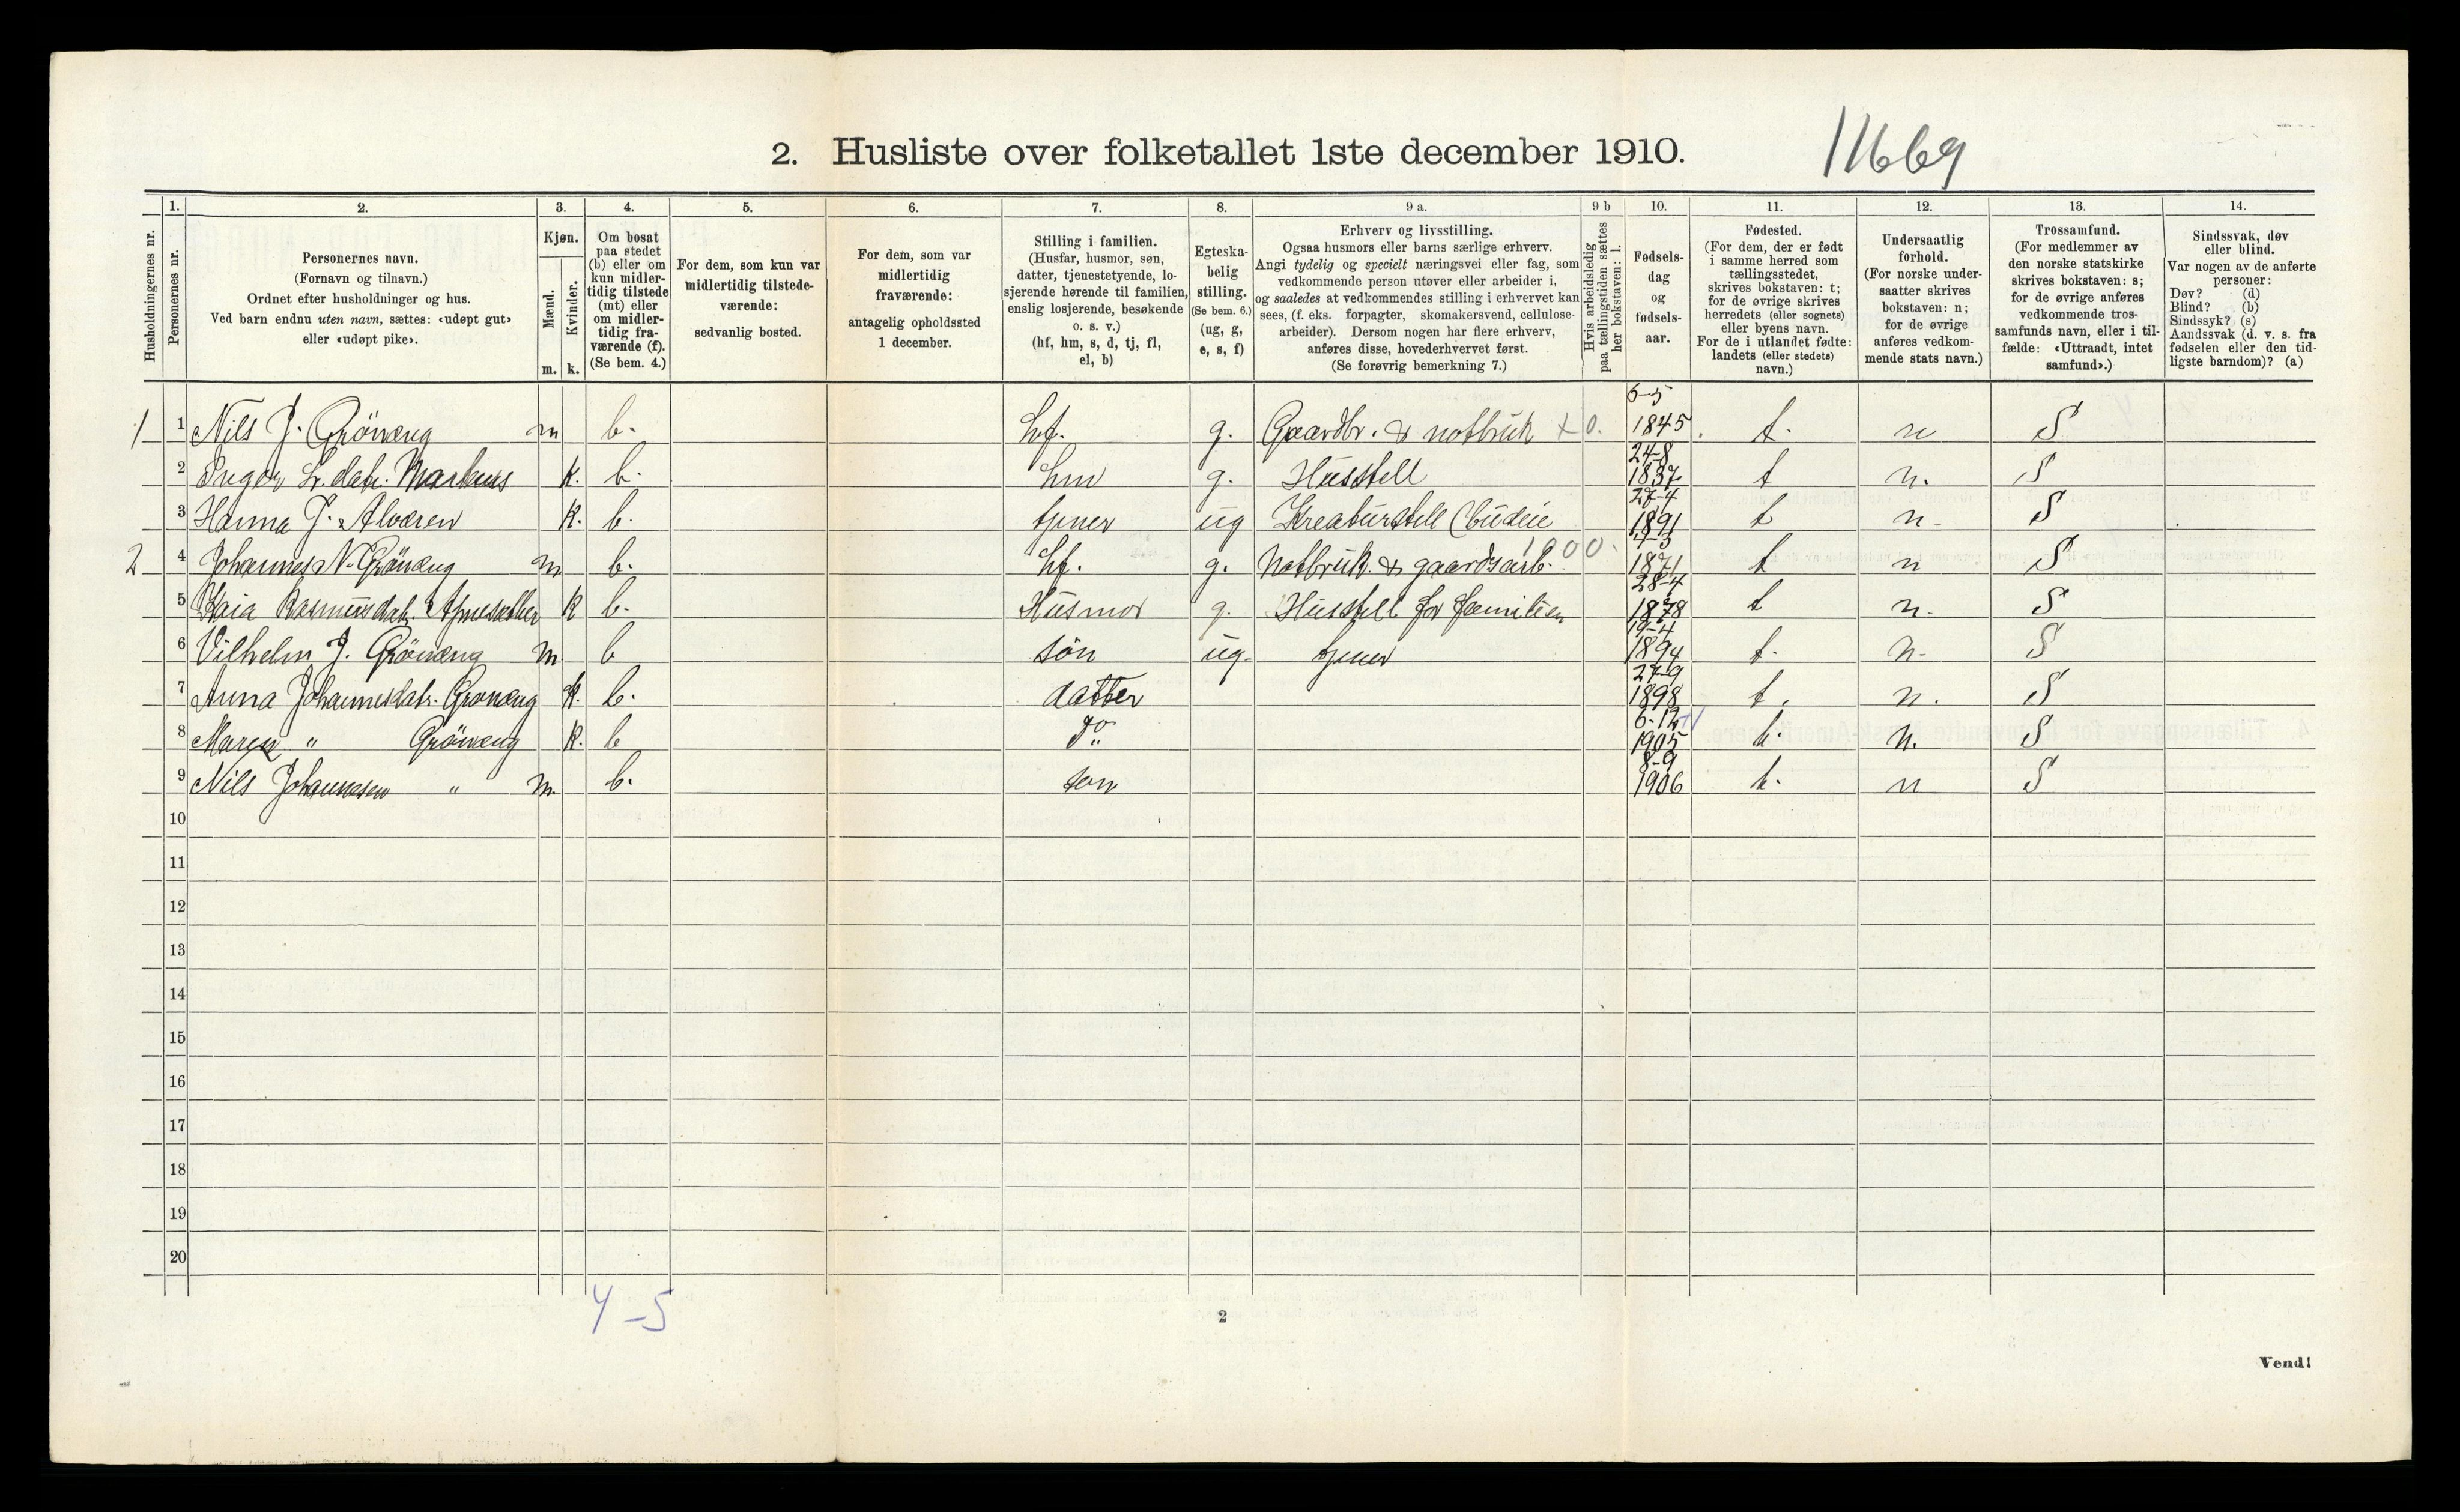 2. Husliste over folketallet 1ste december 1910.
11669
Husholdningernes nr.
1.
Personernes nr.
2.
Personernes navn.
(Fornavn og tilnavn.)
Ordnet efter husholdninger og hus.
Ved barn endnu uten navn, sættes: «udøpt gut»
eller «udøpt pike».
3.
Kjøn.
Mænd.
Kvinder.
m. k.
4.
Om bosat
paa stedet
(b) eller om
kun midler-
tidig tilstede
(mt) eller
om midler-
tidig fra-
værende (f).
(Se bem. 4.)
5.
For dem, som kun var
midlertidig tilstede-
værende:
sedvanlig bosted.
6.
For dem, som var
midlertidig
fraværende:
antagelig opholdssted
1 december.
7.
Stilling i familien.
(Husfar, husmor, søn,
datter, tjenestetyende, lo-
sjerende hørende til familien,
enslig losjerende, besøkende
o. s. v.)
(hf, hm, s, d, tj, fl,
el, b)
8.
Egteska-
belig
stilling.
(Se bem. 6.)
(ug, g,
e, s, f)
9 a.
Erhverv og livsstilling.
Ogsaa husmors eller barns særlige erhverv.
Angi tydelig og specielt næringsvei eller fag, som
vedkommende person utøver eller arbeider i,
og saaledes at vedkommendes stilling i erhvervet kan
sees, (f. eks. forpagter, skomakersvend, cellulose-
arbeider). Dersom nogen har flere erhverv,
anføres disse, hovederhvervet først.
(Se forøvrig bemerkning 7.)
9 b
Hvis arbeidsledig
paa tællingstiden sættes
her bokstaven: l.
10.
Fødsels-
dag
og
fødsels-
aar.
11.
Fødested.
(For dem, der er født
i samme herred som
tællingsstedet,
skrives bokstaven: t;
for de øvrige skrives
herredets (eller sognets)
eller byens navn.
For de i utlandet fødte:
landets (eller stedets)
navn.)
12.
Undersaatlig
forhold.
(For norske under-
saatter skrives
bokstaven: n;
for de øvrige
anføres vedkom-
mende stats navn.)
13.
Trossamfund.
(For medlemmer av
den norske statskirke
skrives bokstaven: s;
for de øvrige anføres
vedkommende tros-
samfunds navn, eller i til-
fælde: «Uttraadt, intet
samfund».)
14.
Sindssvak, døv
eller blind.
Var nogen av de anførte
personer:
Døv? (d)
Blind? (b)
Sindssyk? (s)
Aandssvak (d. v. s. fra
fødselen eller den tid-
ligste barndom)? (a)
1 1 Nils J. Grönæng m b. hf. g. Gaardbr. & notbruk x 0. 6-5 1845 t. n S
2 L. datr. k. b. hm g. Husstell 24-8 1837 t n. S
3 Hanna J. Alværen k. b. tjener ug Kreaturstell (budeie 27-4 1891 t n S
2 4 Johannes N. Grönæng m b. hf. g. Notbruk & gaardsarb. 1900. 1871 t n S
5 Kaia Rasmusdatr. k b. Husmor g. Husstell for familien 28-4 1878 t n. S
6 Vilhelm J. Grönæng m. b søn ug. tjener 19-4 1894 t. n. S
7 Anna Johannesdatr. Grönæng k. b. datter 27-9 1898 t. n. S
8 Maren " Grönæng k. b do 6-12 1905 t. n. S
9 Nils Johannesen " m. b. søn 8-9 1906 t. n S
10
11
12
13
14
15
16
17
18
19
20
4-5
2
Vend!